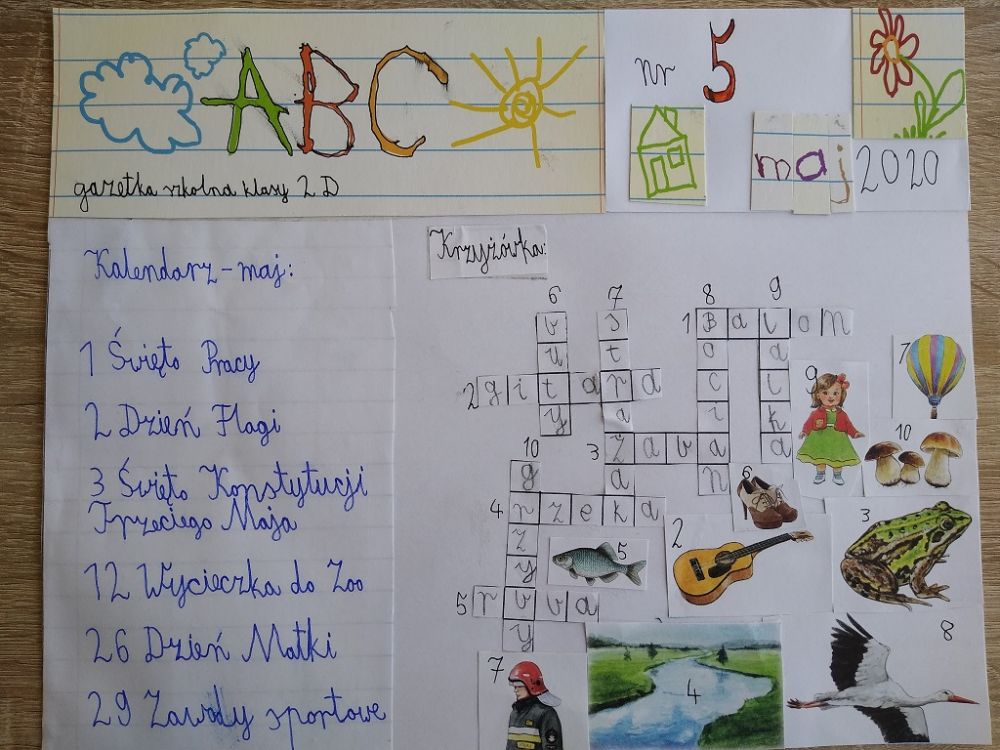 ABC
nr 5
maj 2020
gazetka szkolna klasy 2 D
Kalendarz - maj:
1 Święto Pracy
2 Dzień Flagi
3 Święto Konstytucji
Trzeciego Maja
12 Wycieczka do Zoo
26 Dzień Matki
29 Zawody sportowe
Krzyżówka:
1 Balon
2 gitara
3 żaba
4 rzeka
5 ryba
6 buty
7 strażak
8 Bocian
9 lalka
10 grzyby
1
9
10
6
3
2
5
8
7
4